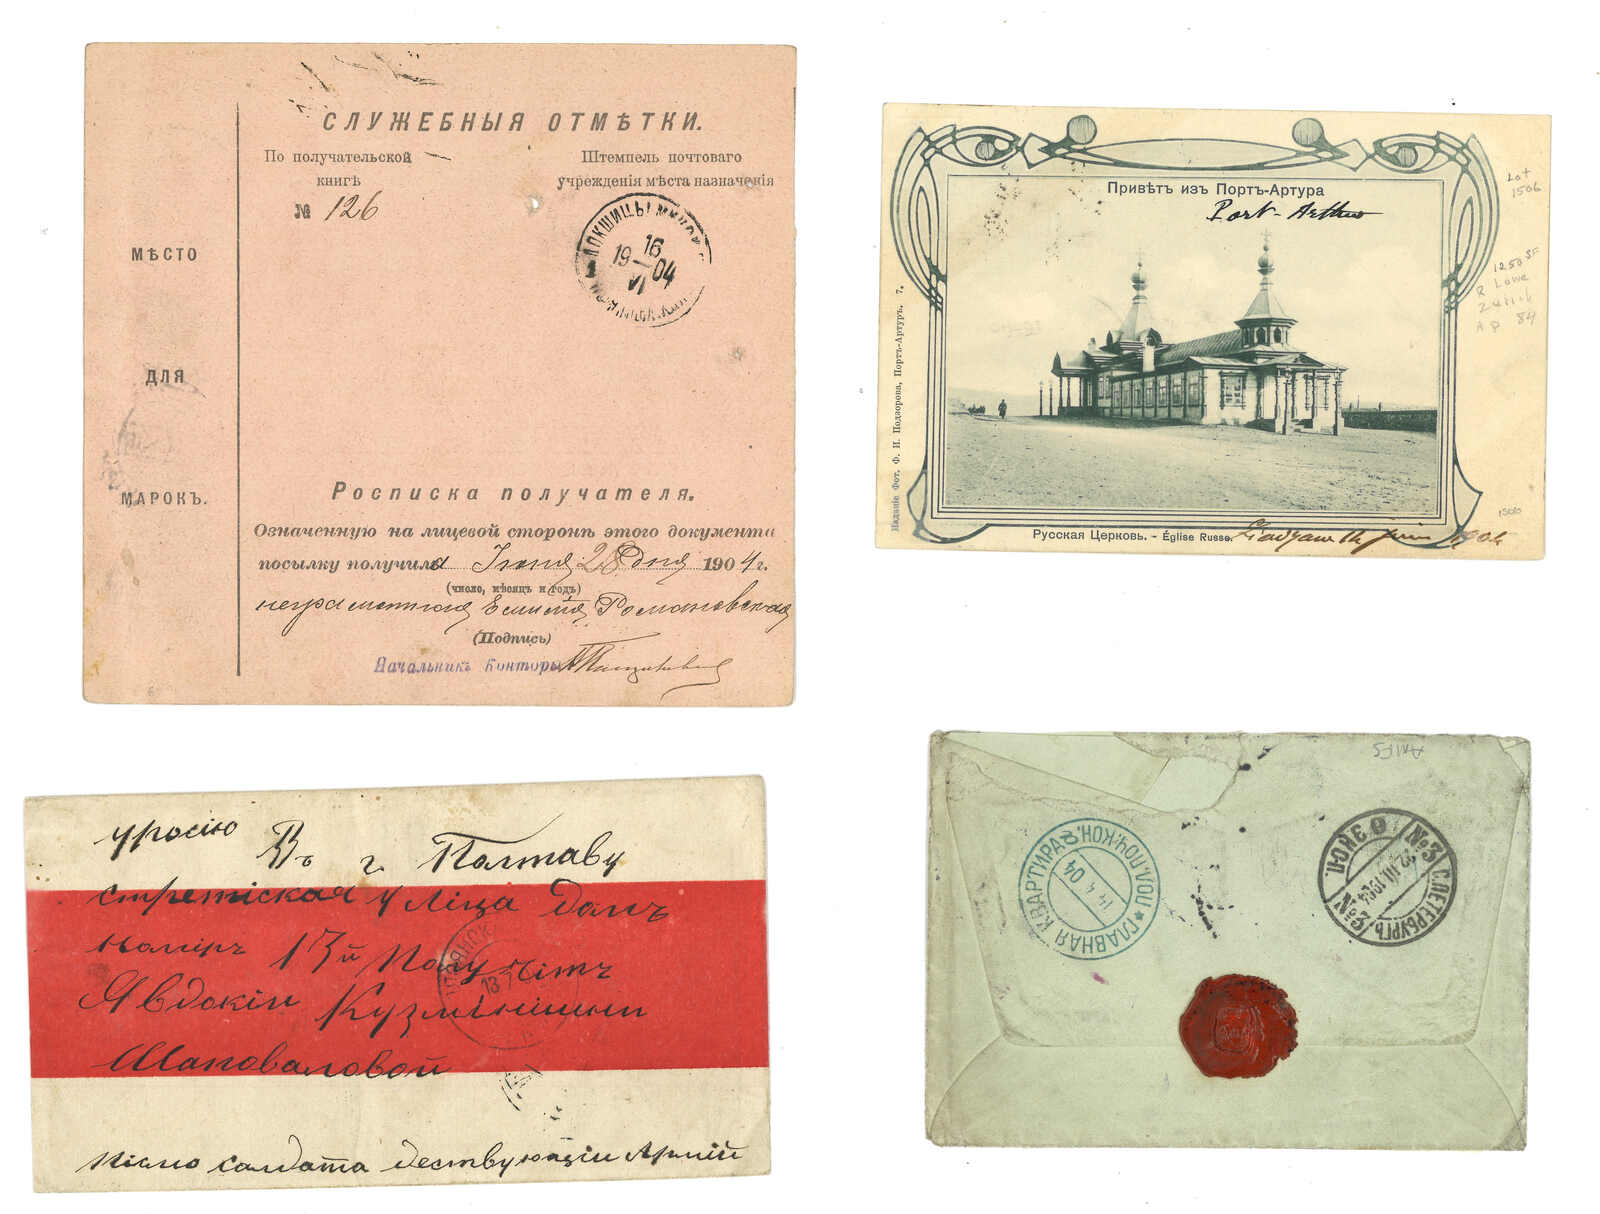 СЛУЖЕБНЫЯ ОТМѢТКИ.
По получательской
книгѣ
№ 126
Штемпель почтоваго
учрежденія мѣста назначенія
19 16/VI 04
МѢСТО
ДЛЯ
МАРОКЪ.
Росписка получателя.
Означенную на лицевой сторонѣ этого документа
посылку получила Іюня 28 дня 1904 г.
(число, мѣсяцъ и годъ)
неграмотная Емилія Романовская
(Подпись)
Начальникъ Конторы
Привѣтъ изъ Портъ-Артура
Port-Arthur
Изданіе Фот. Ф. И. Подзорова, Портъ-Артуръ. 7.
Русская Церковь. - Église Russe.
1904
Lot
1506
1250 SF
R Lowe
AP 84
1506
уросію Въ г. Полтаву
стретіская уліца домъ
номіръ 13й Получіть
Явдокіи Кузмінишни
Шаповаловой
Písмо солдата дествующіи Армій
ГЛАВНАЯ КВАРТИРА
ПОЛ. ПОЧ. КОН.
14 4 04
С.ПЕТЕРБУРГЪ
№3
22 III 1904
ANFS